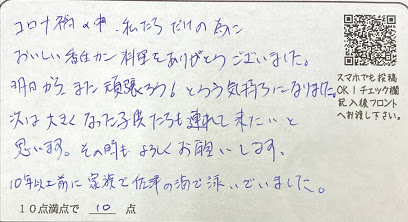 コロナ禍の中、私たちだけの為に
おいしい香住カニ料理をありがとうございました。
明日からまた頑張ろう!という気持ちになりました。
次は大きくなった子供たちも連れて来たいと
思います。その時もよろしくお願いします。
10年以上前に家族で佐津の海で泳いでいました。
10点満点で 10 点
スマホでも投稿
OK!チェック欄
記入後フロント
へお渡し下さい。